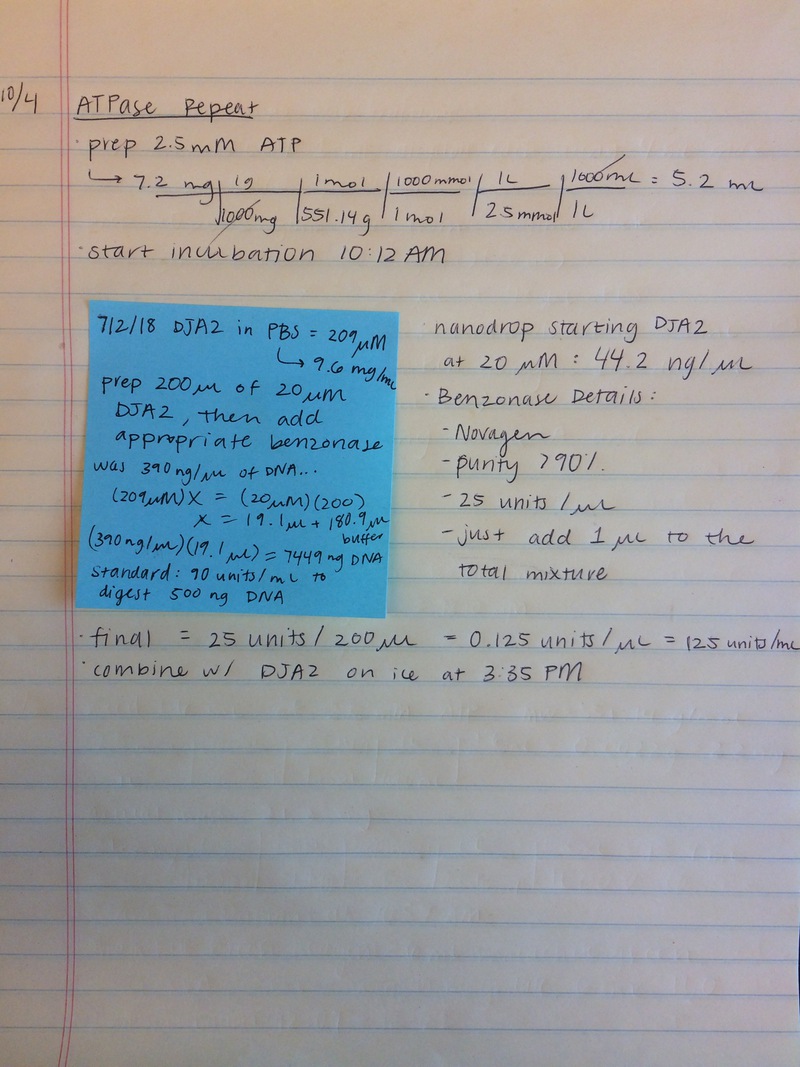 10/4 ATPase Repeat
· prep 2.5mM ATP
↳ 7.2 mg | 1g | 1mol | 1000 mmol | 1L | 1000mL = 5.2 mL
1000mg | 551.14g | 1mol | 2.5mmol | 1L
· start incubation 10:12 AM
7/2/18 DJA2 in PBS = 209µM
↳ 9.6 mg/mL
prep 200µL of 20µM
DJA2, then add
appropriate benzonase
was 390ng/µL of DNA...
(209µM)X = (20µM)(200)
X = 19.1µL + 180.9µL
buffer
(390ng/µL)(19.1µL) = 7449 ng DNA
standard: 90 units/mL to
digest 500 ng DNA
· nanodrop starting DJA2
at 20 µM : 44.2 ng/µL
· Benzonase Details:
- Novagen
- purity >90%
- 25 units/µL
- just add 1 µL to the
total mixture
· final = 25 units/200µL = 0.125 units/µL = 125 units/mL
· combine w/ DJA2 on ice at 3:35 PM